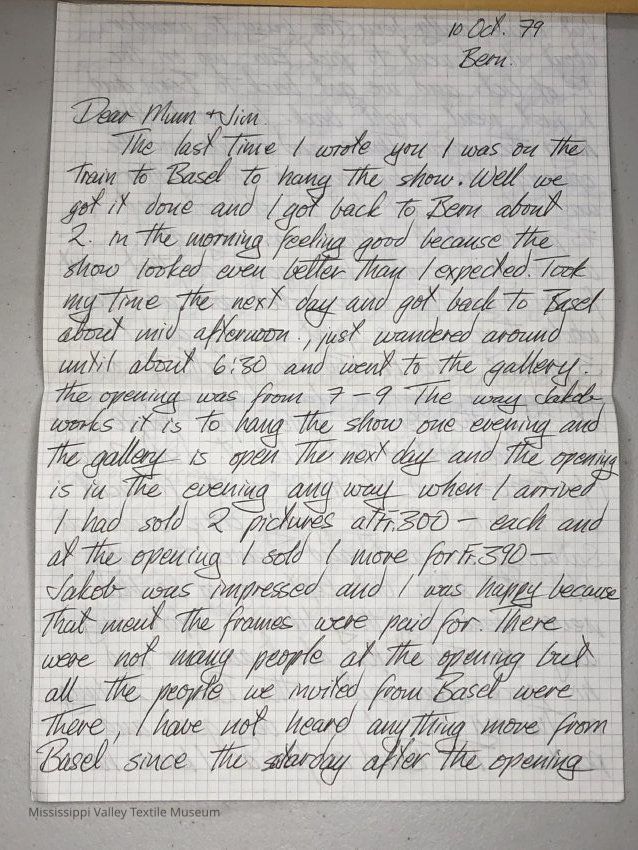 10 Oct. 79
Bern.
Dear Mum + Jim
The last time I wrote you I was on the
train to Basel to hang the show. Well we
got it done and I got back to Bern about
2. in the morning feeling good because the
show looked even better than I expected. Took
my time the next day and got back to Basel
about mid afternoon., just wandered around
until about 6:30 and went to the gallery.
the opening was from 7-9 The way Jakob
works it is to hang the show one evening and
the gallery is open the next day and the opening
is in the evening any way when I arrived
I had sold 2 pictures at Fr.300- each and
at the opening I sold 1 more for Fr.390-
Jakob was impressed and I was happy because
that ment the frames were paid for. There
were not many people at the opening but
all the people we invited from Basel were
there, I have not heard anything more from
Basel since the starday after the opening
Mississippi Valley Textile Museum